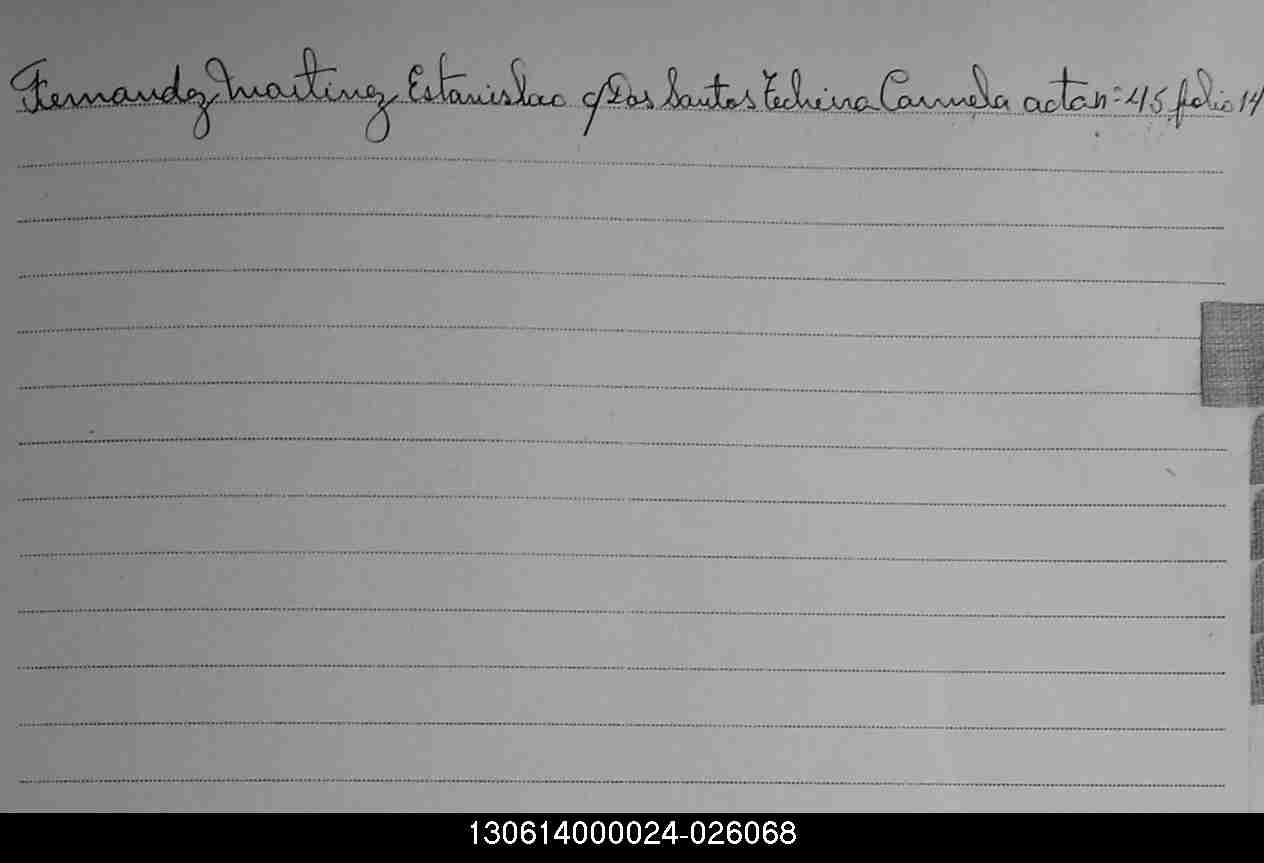 Fernandez Martinez Estanislao y Dos Santos Techeira Carmela acta nº 45 folio 14
130614000024-026068